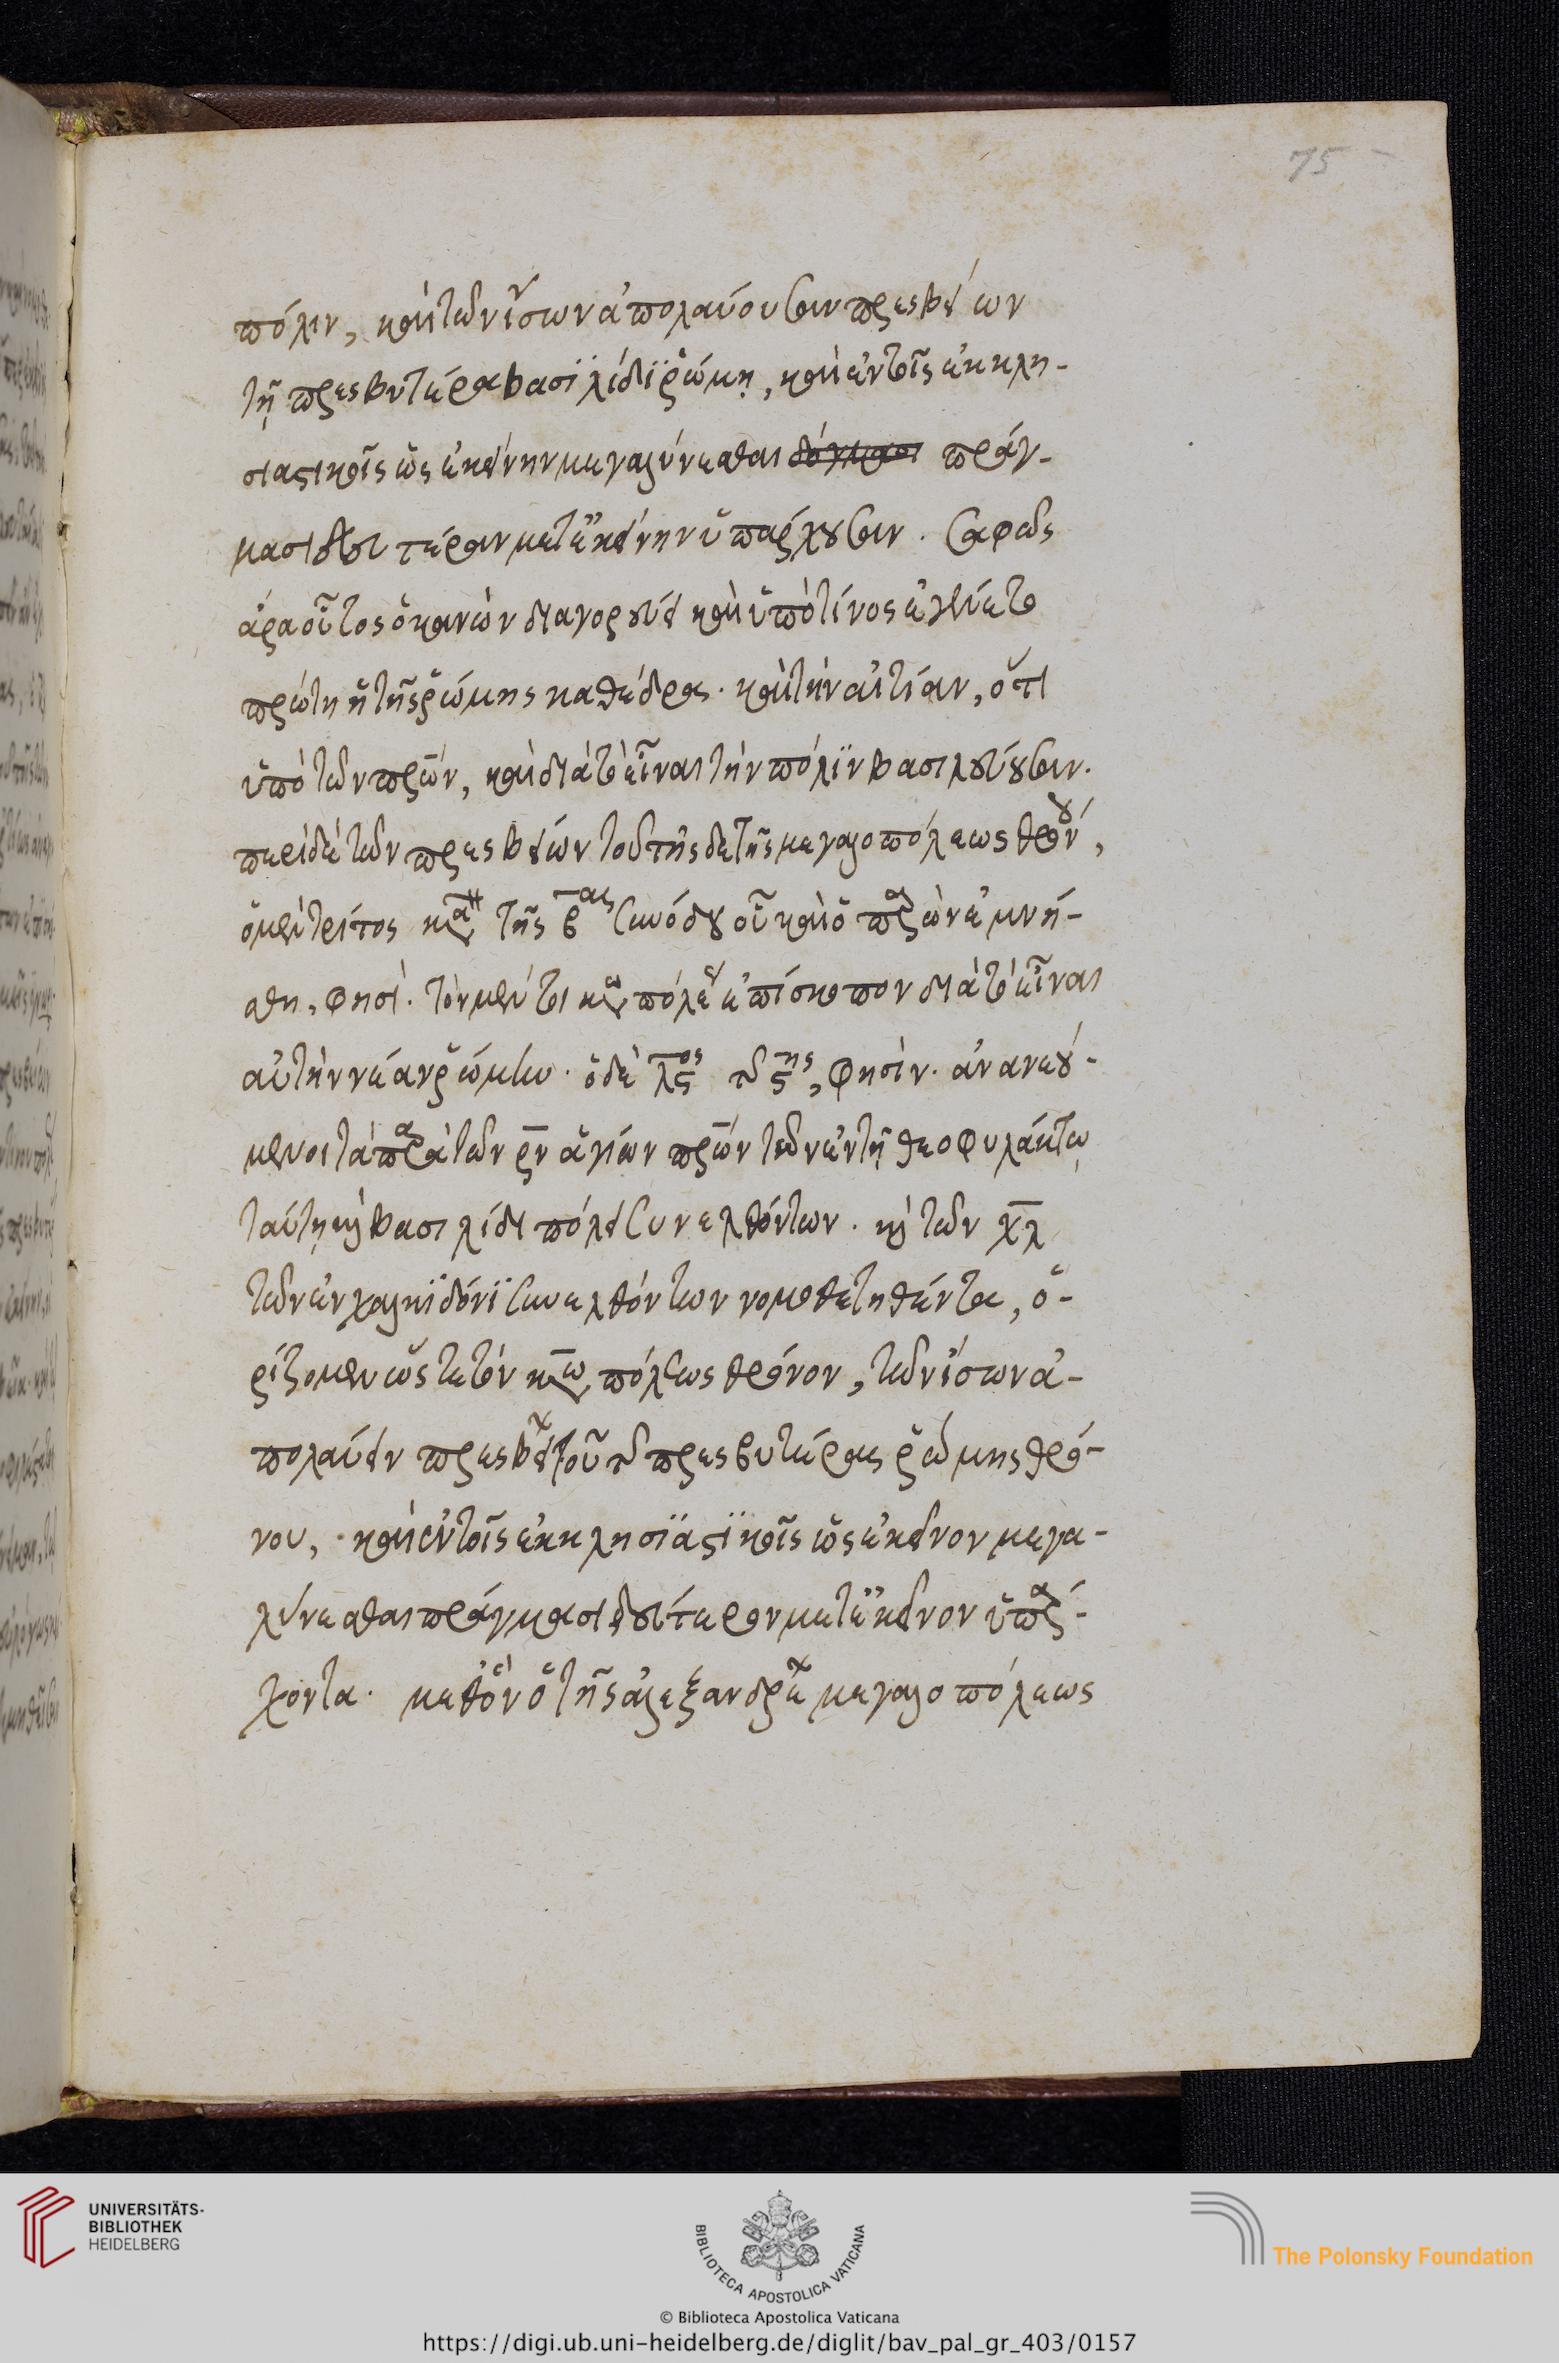 75
πόλιν, καὶ τῶν ἴσων ἀπολαύουσιν πρεσβείων
τῇ πρεσβυτέρα βασϊλίδϊ ῥώμῃ, καὶ ἐν τοῖς ἐκκλη-
σιαστικοῖς ὡς ἐκείνην μεγαλύνεσθαι δόγμασι πράγ-
μασι δευτέραν μετ' ἐκείνην ὑπάρχουσιν. σαφῶς
ἄρα οὗτος ὁ κανὼν διαγορεύει καὶ ὑπὸ τίνος ἐγένετο
πρώτη ἡ τῆς ῥώμης καθέδρα. καὶ τὴν αἰτίαν, ὅτι
ὑπὸ τῶν πρων, καὶ διὰ τὸ εἶναι τὴν πόλϊν βασιλεύουσιν.
περὶ δὲ τῶν πρεσβείων τοῦ τῆσδε τῆς μεγαλοπόλεως θρόνου,
ὁ μὲν τρίτος κα τῆς βας συνόδου οὗ καὶ ὁ παρὼν ἐμνή-
σθη, φησί. τὸν μέν τοι κω πόλε ἐπίσκοπον διὰ τὸ εἶναι
αὐτὴν νέαν ῥώμην. ὁ δὲ λςος τῆς ςης, φησὶν. ἀνανεού-
μενοι τὰ παρὰ τῶν ρν ἁγίων πρων τῶν ἐν τῇ θεοφυλάκτω
ταύτῃ καὶ βασιλίδι πόλει συνελθόντων. καὶ τῶν χλ
τῶν ἐν χαλκϊδόνϊ συνελθόντων νομοθετηθέντα, ὁ-
ρίζομεν ὥστε τὸν κω πόλεως θρόνον, τῶν ἴσων ἀ-
πολαύειν πρεσβεί τοῦ τῆς πρεσβυτέρας ῥώμης θρό-
νου, καὶ ἐν τοῖς ἐκκλησϊαστϊκοῖς ὡς ἐκεῖνον μεγα-
λύνεσθαι πράγμασι δεύτερον μετ' ἐκεῖνον ὑπάρ-
χοντα. μεθ' ὃν ὁ τῆς ἀλεξανδρε μεγαλοπόλεως
UNIVERSITÄTS-
BIBLIOTHEK
HEIDELBERG
BIBLIOTECA APOSTOLICA VATICANA
The Polonsky Foundation
© Biblioteca Apostolica Vaticana
https://digi.ub.uni-heidelberg.de/diglit/bav_pal_gr_403/0157